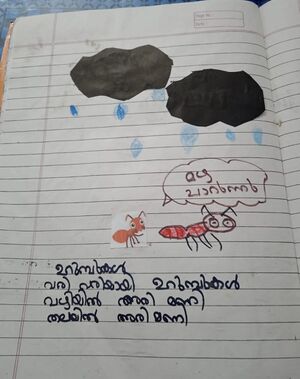 Page No.
Date
മഴ
ചാറുന്നേ
ഉറുമ്പുകൾ
വരി വരിയായി ഉറുമ്പുകൾ
വഴിയിൽ അതി മണി
തലയിൽ അരിമണി